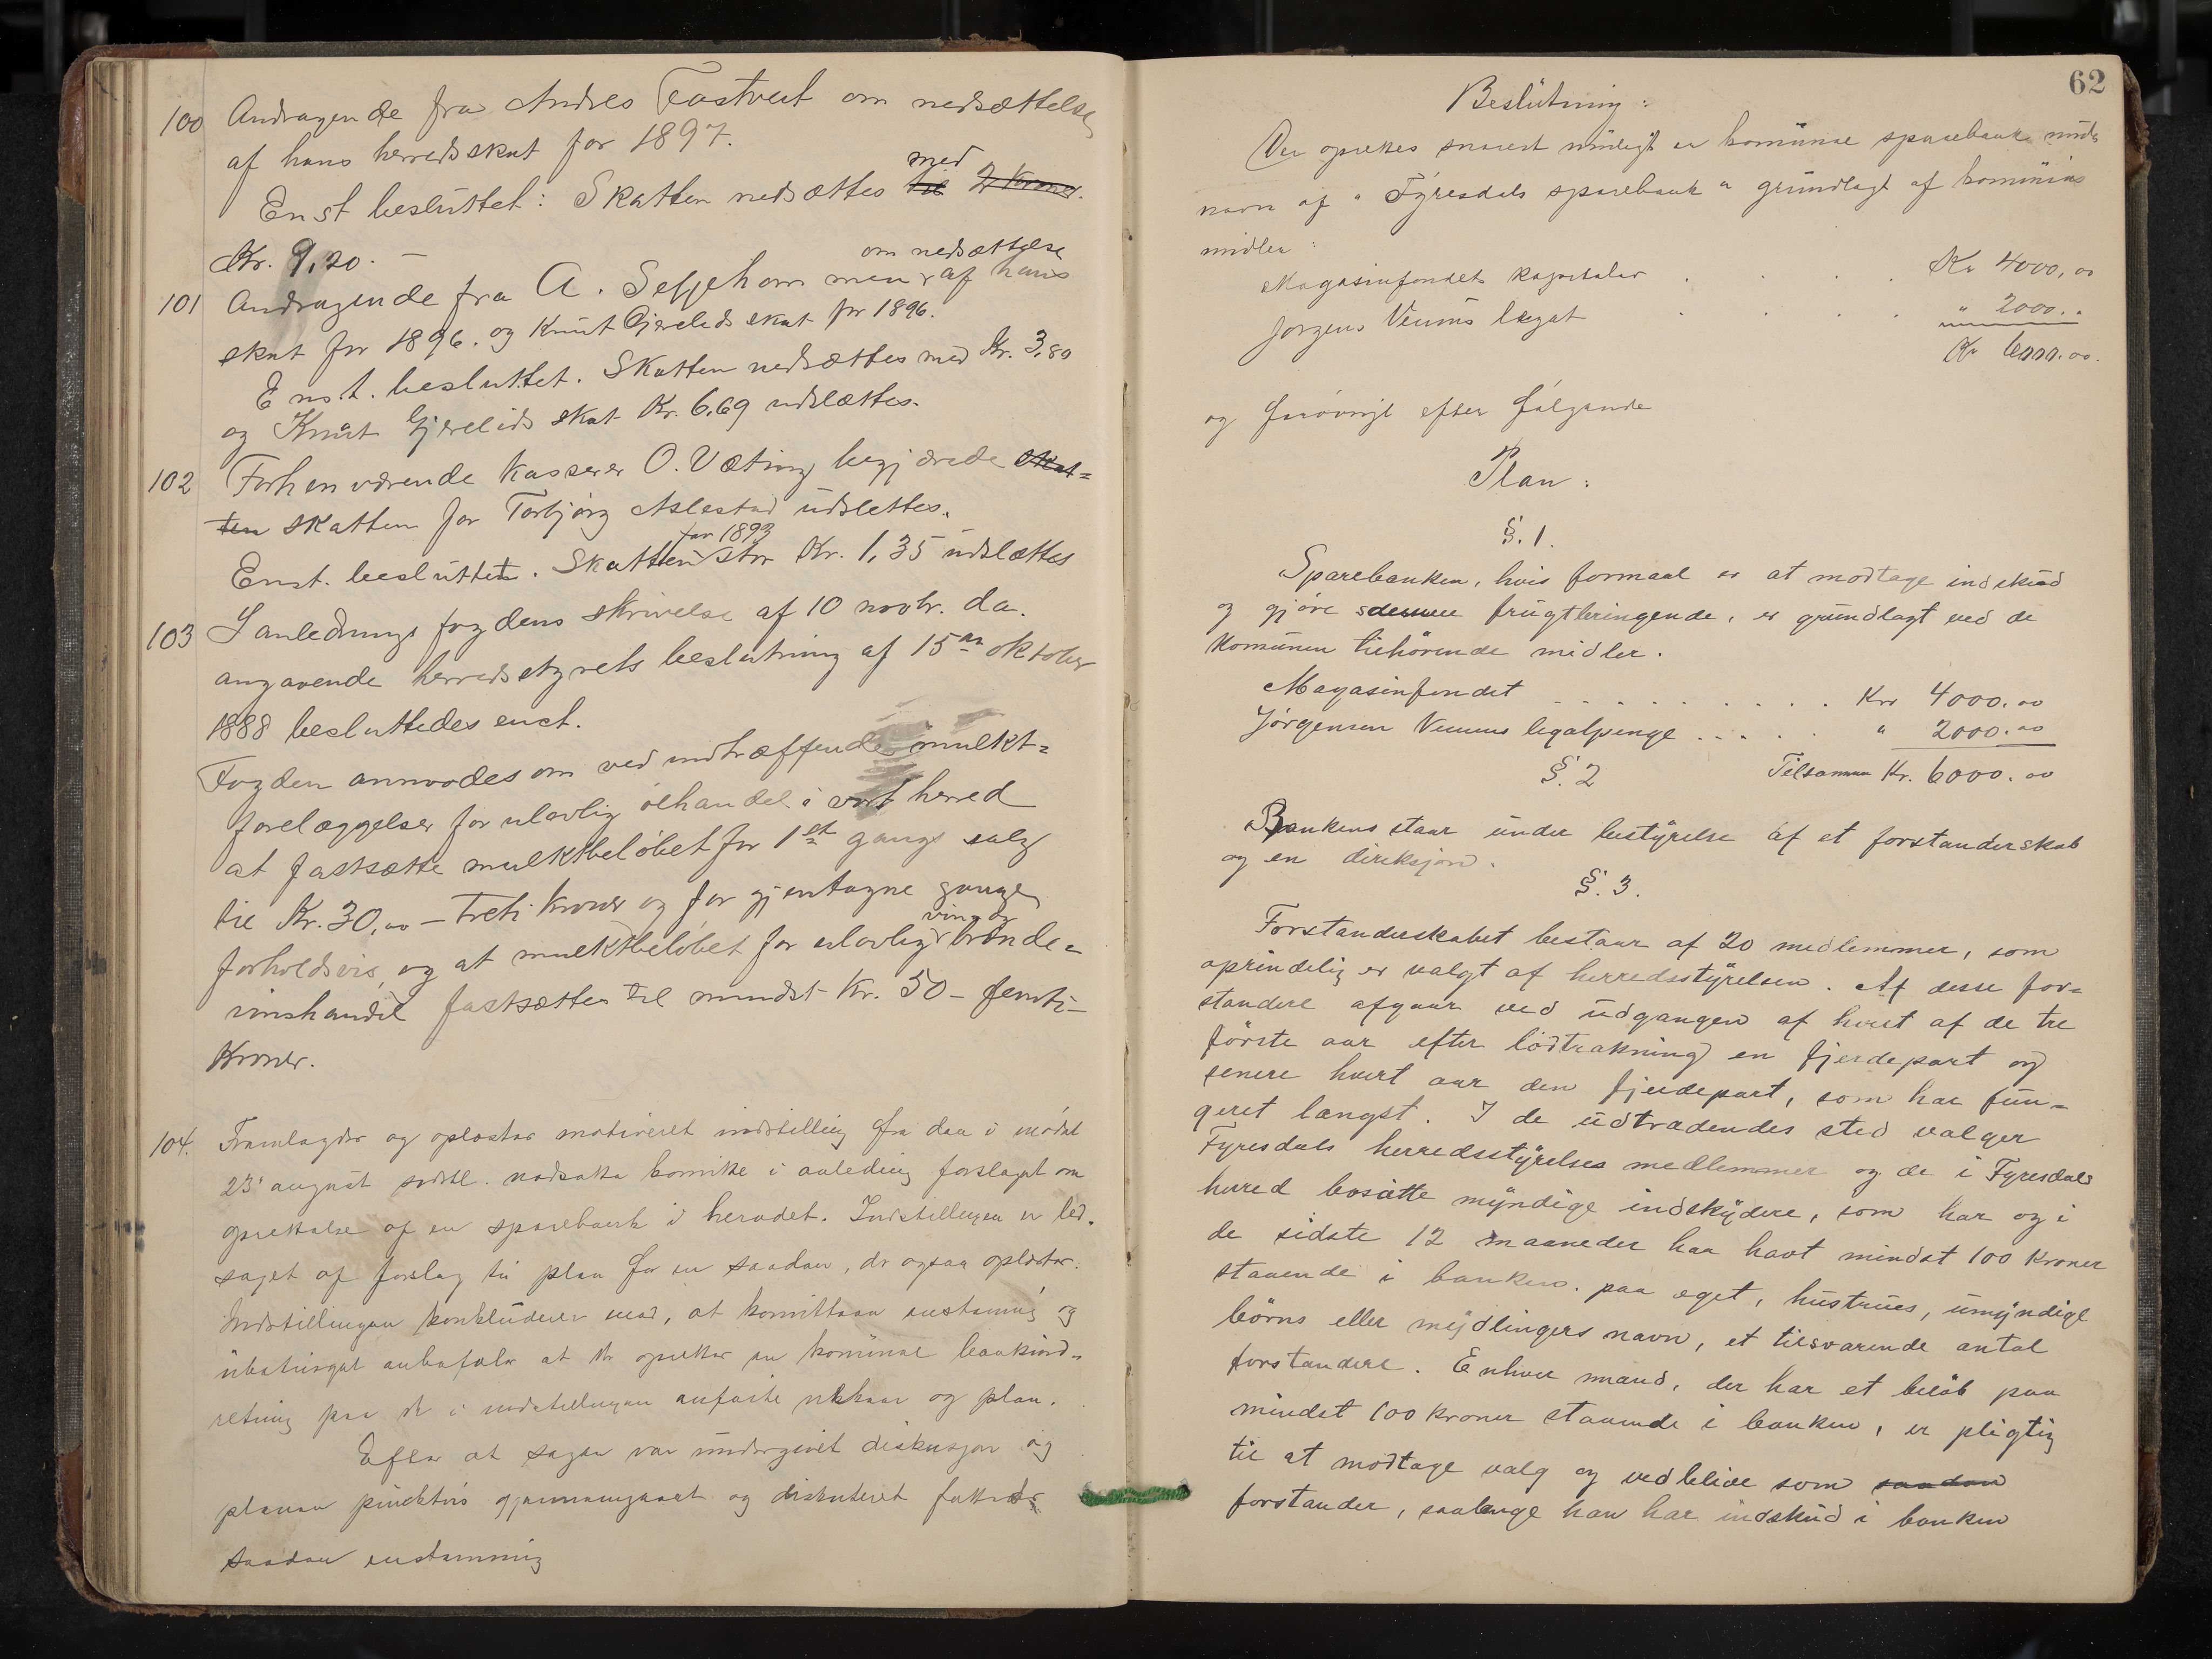 100 Andragende fra Andres Tostveit om nedsættelse
af hans herredsskat for 1897.
med
Enst besluttet: Skatten nedsættes til 2 Kroner.
Kr. 9,20. –
om nedsættelse
101 Andragende fra A. Seljehommen af hans
skat for 1896. og Knut Gjerelids skat for 1896.
Enst. besluttet. Skatten nedsættes med Kr. 3,80
og Knut Gjerelids skat Kr. 6,69 udslættes.
102 Forhenværende Kasserer O. Væting begjærede skat=
ten skatten for Torbjørg Aslestad udslettes.
for 1893
Enst. besluttet. Skatten stor Kr. 1,35 udslættes
103 I anledning fogdens skrivelse af 10 novbr. d.a.
angaaende herredsstyrets beslutning af 15de oktober
1888 besluttedes enst.
Fogden anmodes om ved indtræffende mulkt=
forelæggelser for ulovlig ølhandel i vort herred
at fastsætte mulktbeløbet for 1ste gangs salg
til Kr. 30,00 – Treti kroner og for gjentagne gange
vin og
forholdsvis, og at mulktbeløbet for ulovlig brænde=
vinshandel fastsættes til mindst Kr. 50 – femti –
Kroner.
104. Framlagdes og oplæstes motiveret indstilling fra den i mødet
23' august sidstl. nedsatte komite i anledning forslaget om
oprettelse af en sparebank i herredet. Indstillingen er led-
saget af forslag til plan for en saadan, der ogsaa oplæstes.
Indstillingen konkluderer med, at komitteen enstemmig og
ubetinget anbefaler at der oprettes en komunal bankind-
retning paa de i indstillingen anførte vilkaar og plan.
Efter at sagen var undergivet diskusjon og
planen punktvis gjennemgaaet og diskuteret fattedes
saadan enstemmig
62
Beslutning:
Der oprettes snarest muligt en komunal sparebank under
navn af " Fyresdals sparebank " grundlagt af komunens
midler:
Magasinfondets kapitaler . . . Kr 4000,00
Jørgens Veums legat . . . . " 2000. "
Kr 6000.00.
og forøvrigt efter følgende
Plan:
§. 1.
Sparebanken, hvis formaal er at modtage indskud
og gjøre denne frugtbringende, er grundlagt ved de
komunen tilhørende midler.
Magasinfondet . . . . . . . . . . Kr 4000.00
Jørgensen Veums legatpenge . . . . . " 2000.00
§. 2 Tilsammen Kr. 6000.00
Bankens staar under bestyrelse af et forstanderskab
og en direksjon.
§. 3.
Forstanderskabet bestaar af 20 medlemmer, som
oprindelig er valgt af herredsstyrelsen. Af disse for=
standere afgaar ved udgangen af hvert af de tre
første aar efter lodtrækning en fjerdepart og
senere hvert aar den fjerdepart, som har fun=
geret længst. I de udtrædendes sted vælger
Fyresdals herredsstyrelses medlemmer og de i Fyresdals
herred bosatte myndige indskydere, som har og i
de sidste 12 maaneder har havt mindst 100 kroner
staaende i banken. paa eget, hustrues, umyndige
børns eller myndlingers navn, et tilsvarende antal
forstandere. Enhver mand, der har et beløb paa
mindst 100 kroner staaende i banken, er pligtig
til at modtage valg og vedblive som saadan
forstander, saalænge han har indskud i banken